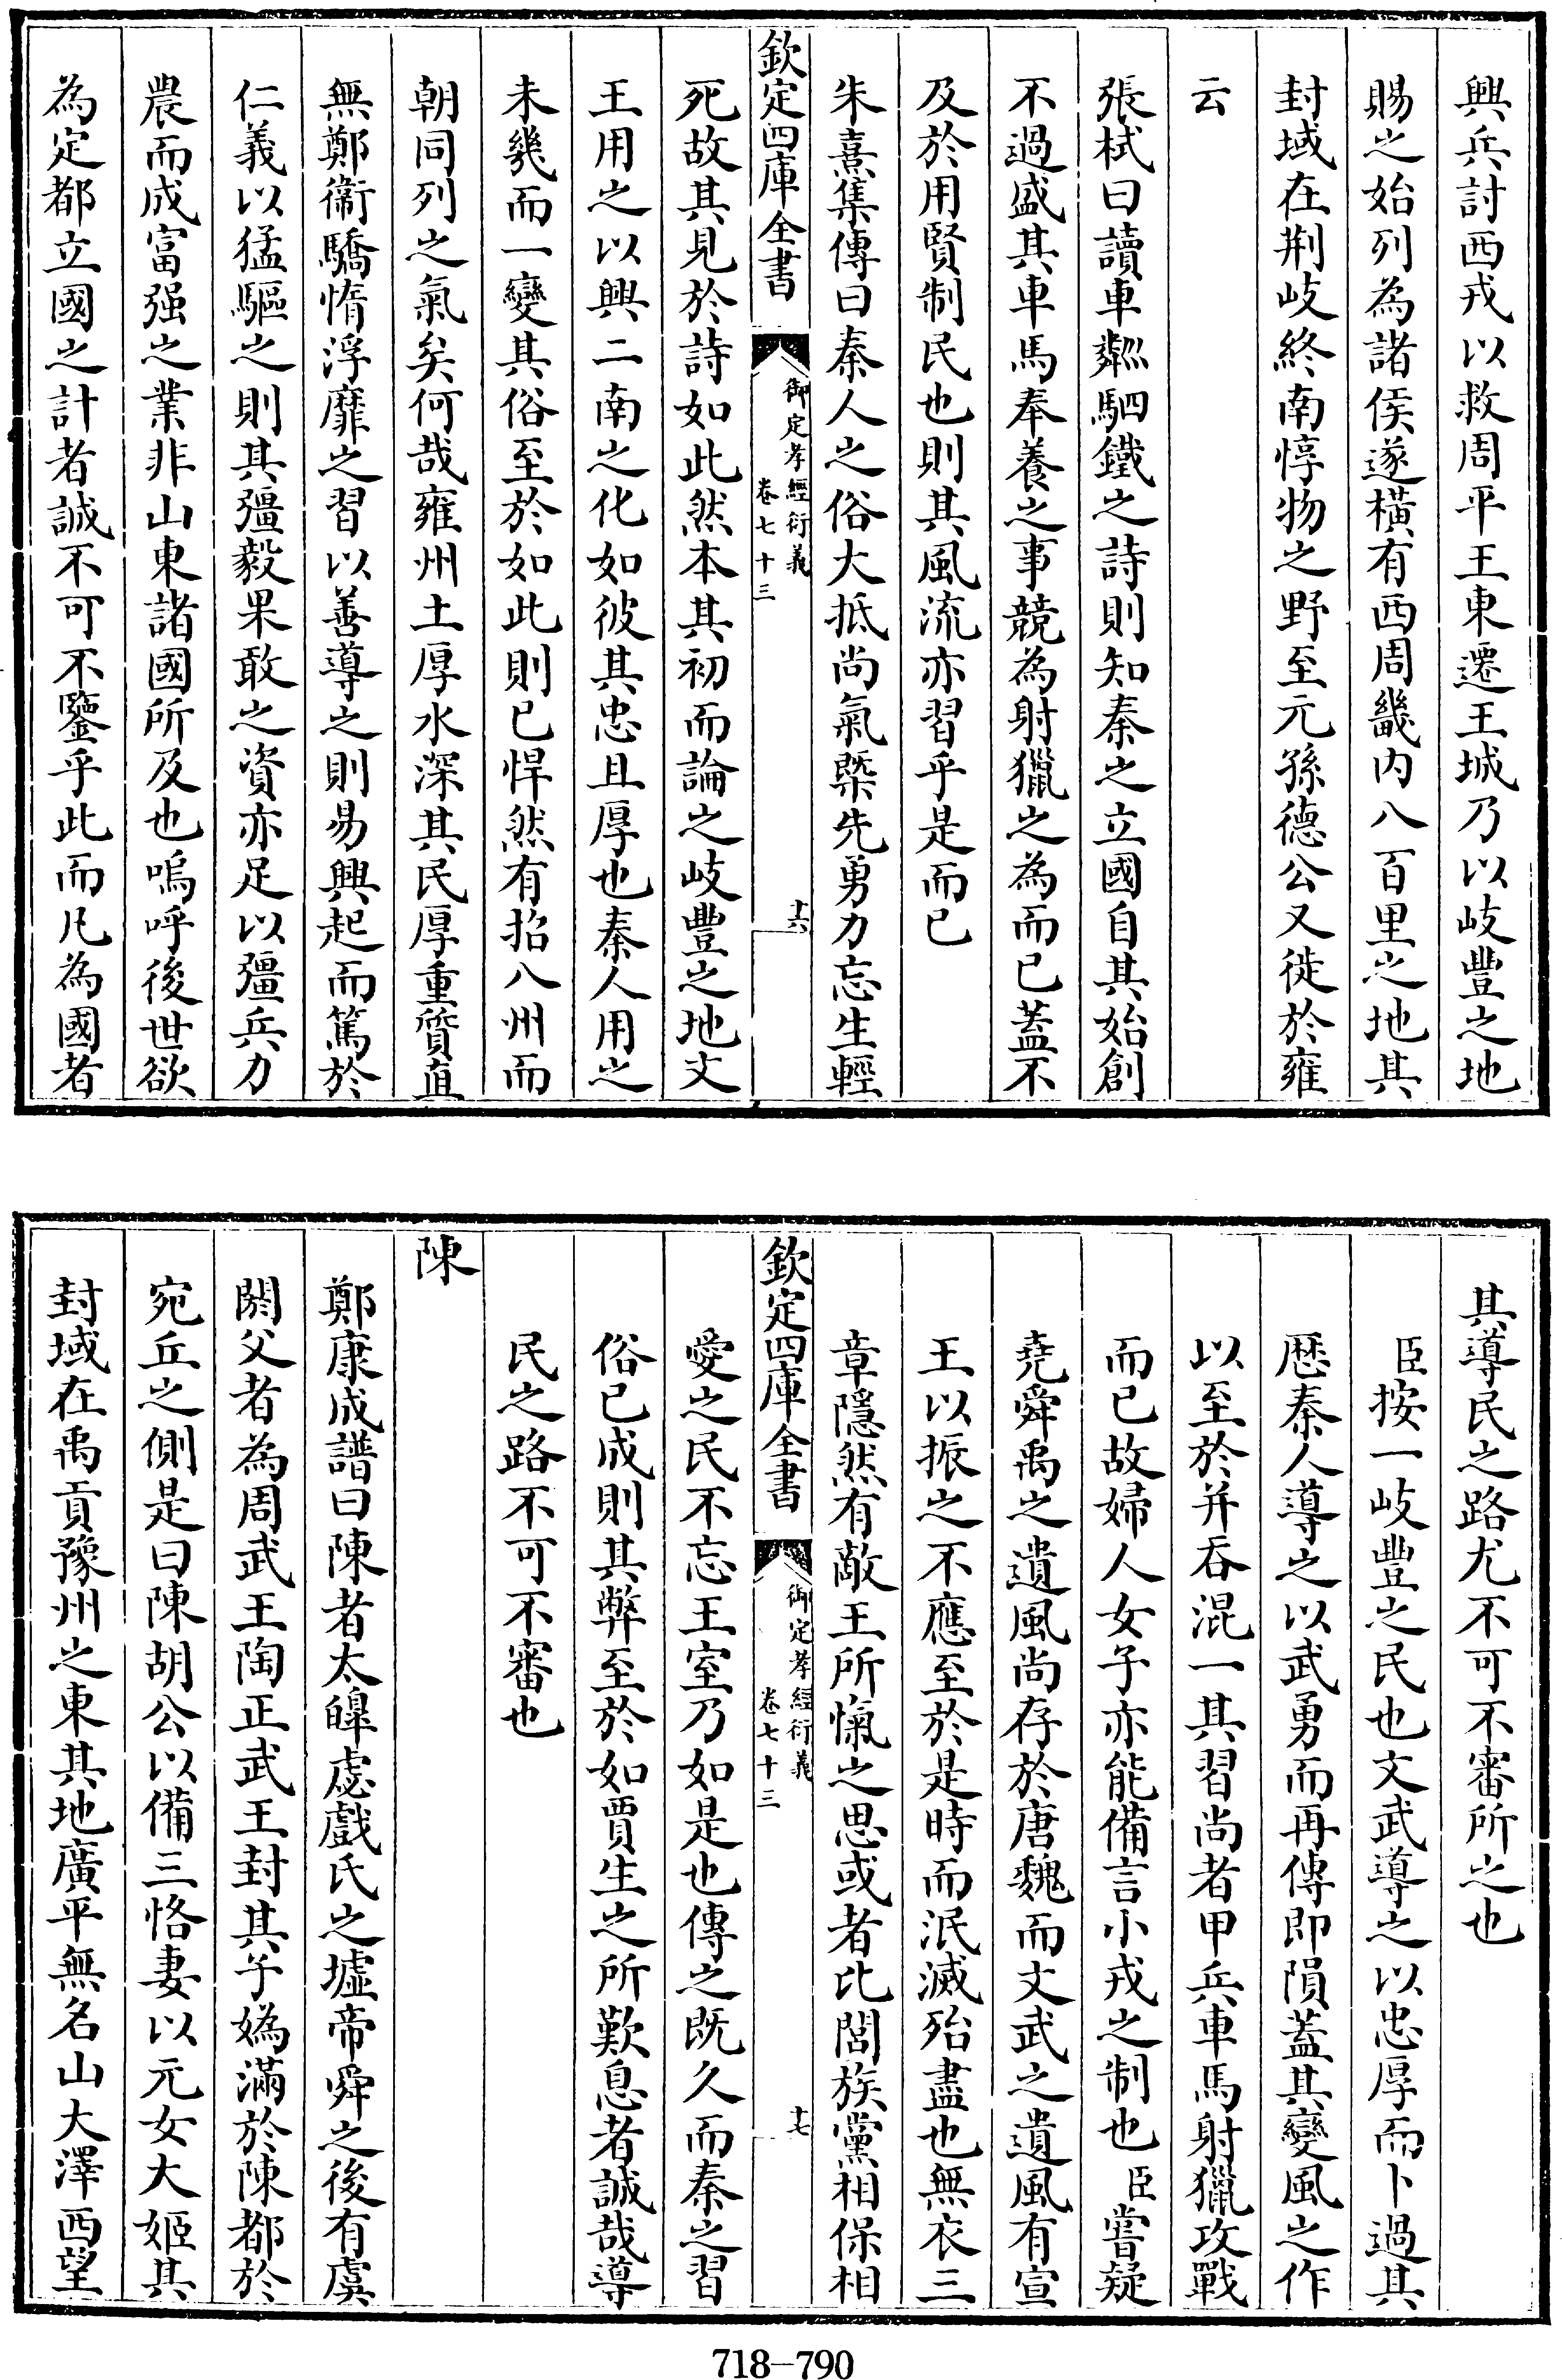 興兵討西戎以救周平王東遷王城乃以岐豐之地
賜之始列為諸侯遂横有西周畿内八百里之地其
封域在荆岐終南惇物之野至元孫德公又徙於雍
云
張栻曰讀車鄰駟鐵之詩則知秦之立國自其始創
不過盛其車馬奉養之事競為射獵之為而已蓋不
及於用賢制民也則其風流亦習乎是而已
朱熹集傳曰秦人之俗大抵尚氣槩先勇力忘生輕
欽定四庫全書
御定孝經衍義
卷七十三
十六
死故其見於詩如此然本其初而論之岐豐之地文
王用之以興二南之化如彼其忠且厚也秦人用之
未幾而一變其俗至於如此則已悍然有招八州而
朝同列之氣矣何哉雍州土厚水深其民厚重質直
無鄭衞驕惰浮靡之習以善導之則易興起而篤於
仁義以猛驅之則其彊毅果敢之資亦足以彊兵力
農而成富强之業非山東諸國所及也嗚呼後世欲
為定都立國之計者誠不可不鑒乎此而凡為國者
其導民之路尤不可不審所之也
臣按一岐豐之民也文武導之以忠厚而卜過其
厯秦人導之以武勇而再傳即隕蓋其變風之作
以至於并吞混一其習尚者甲兵車馬射獵攻戰
而已故婦人女子亦能備言小戎之制也臣嘗疑
堯舜禹之遺風尚存於唐魏而文武之遺風有宣
王以振之不應至於是時而泯滅殆盡也無衣三
章隱然有敵王所愾之思或者比閭族黨相保相
欽定四庫全書
御定孝經衍義
卷七十三
十七
愛之民不忘王室乃如是也傳之既久而秦之習
俗已成則其弊至於如賈生之所歎息者誠哉導
民之路不可不審也
陳
鄭康成譜曰陳者太皥虙戲氏之墟帝舜之後有虞
閼父者為周武王陶正武王封其子媯滿於陳都於
宛丘之側是曰陳胡公以備三恪妻以元女大姬其
封域在禹貢豫州之東其地廣平無名山大澤西望
718-790